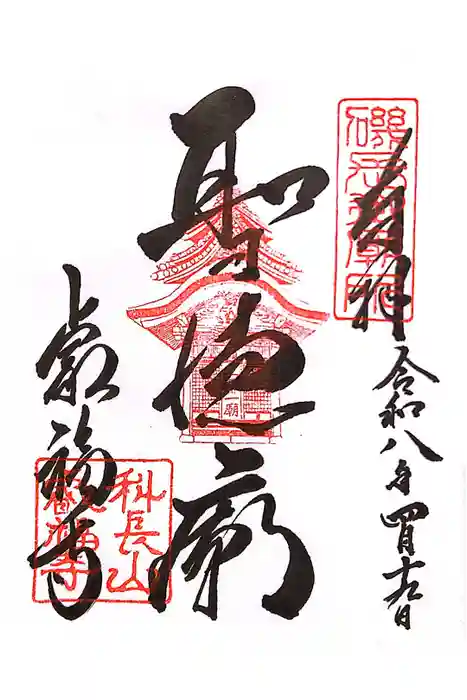 奉拝
令和八年四月十九日
聖徳廟
叡福寺
科長山
叡福寺